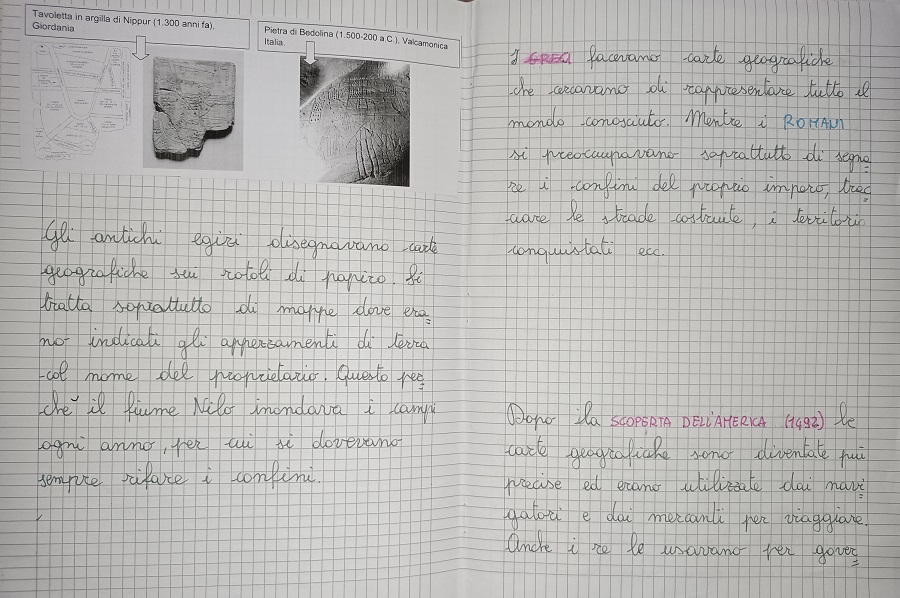 Tavoletta in argilla di Nippur (1.300 anni fa),
Giordania
Pietra di Bedolina (1.500-200 a.C.), Valcamonica
Italia.
Gli antichi egizi disegnavano carte
geografiche su rotoli di papiro. Si
tratta soprattutto di mappe dove era=
no indicati gli apperzamenti di terra
col nome del proprietario. Questo per=
chè il fiume Nilo inondava i campi
ogni anno, per cui si dovevano
sempre rifare i confini.
I GRECI facevano carte geografiche
che cercavano di rappresentare tutto il
mondo conosciuto. Mentre i ROMANI
si preoccupavano soprattutto di segna=
re i confini del proprio impero, trac=
ciare le strade costruite, i territori
conquistati ecc.
Dopo la SCOPERTA DELL'AMERICA (1492) le
carte geografiche sono diventate più
precise ed erano utilizzate dai navi=
gatori e dai mercanti per viaggiare.
Anche i re le usavano per gover=